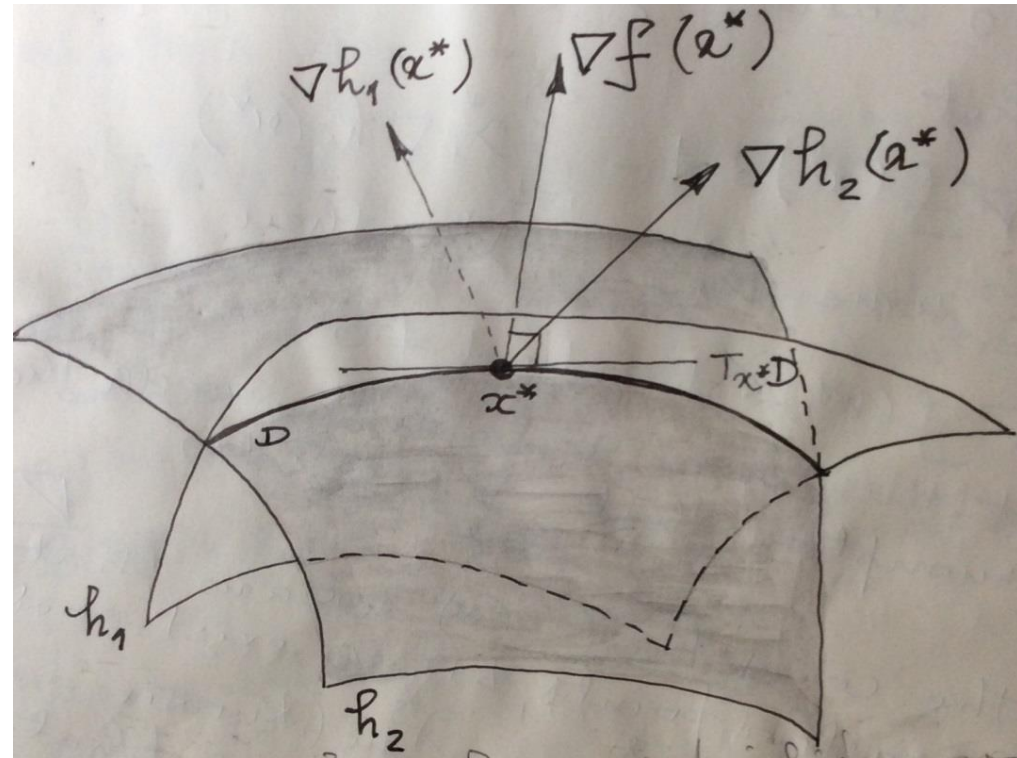 ∇h₁(x*)
∇f(x*)
∇h₂(x*)
Tₓ*D
x*
D
h₁
h₂